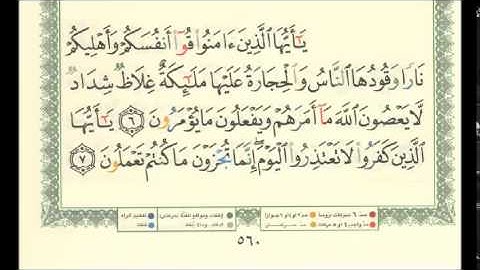 يَٰٓأَيُّهَا ٱلَّذِينَ ءَامَنُوا۟ قُوٓا۟ أَنفُسَكُمْ وَأَهْلِيكُمْ
نَارًا وَقُودُهَا ٱلنَّاسُ وَٱلْحِجَارَةُ عَلَيْهَا مَلَٰٓئِكَةٌ غِلَاظٌ شِدَادٌ
لَّا يَعْصُونَ ٱللَّهَ مَآ أَمَرَهُمْ وَيَفْعَلُونَ مَا يُؤْمَرُونَ ٦ يَٰٓأَيُّهَا
ٱلَّذِينَ كَفَرُوا۟ لَا تَعْتَذِرُوا۟ ٱلْيَوْمَ إِنَّمَا تُجْزَوْنَ مَا كُنتُمْ تَعْمَلُونَ ٧
٥٦٠